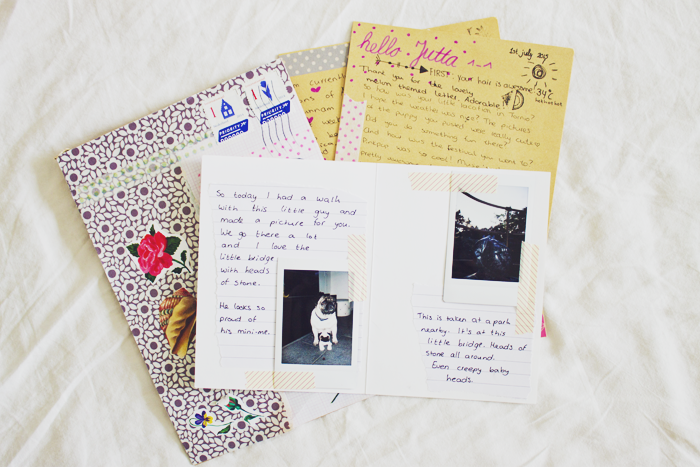 hello Jutta ^-^
1st july
FIRST - your hair is awesome
34°C
hot hot hot
Thank you for the lovely
melon themed letter. Adorable
So how was your little
Hope the weather was nice? The pictures
of the puppy you posted were really cute
Did you do something fun there?
And how was the festival you went to?
Pinkpop was so cool!
Pretty
currentl
ns of
nnam
week
1
1
PRIORITY
PRIORITY
So today I had a walk
with this little guy and
made a picture for you.
We go there a lot
and I love the
little bridge
with heads
of stone.
He looks so
proud of
his mini-me.
This is taken at a park
nearby. It's at this
little bridge. Heads of
stone all around.
Even creepy baby
heads.